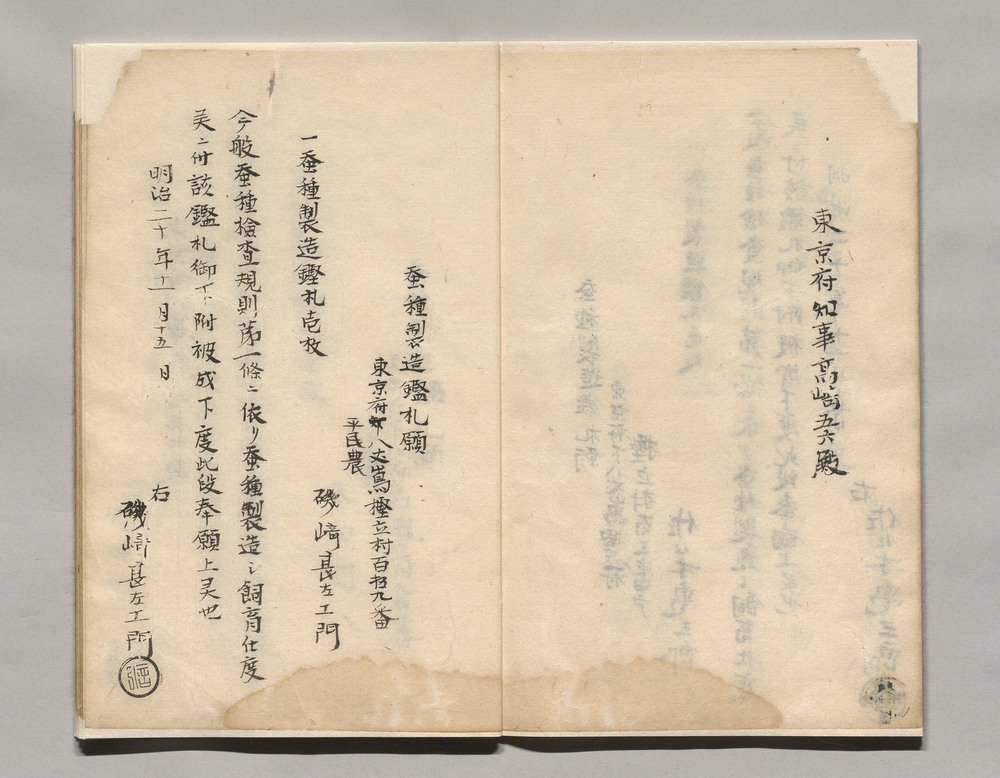 東京府知事髙崎五六殿
蚕種製造鑑札願
東京府下八丈嶌樫立村百拾九番
平民農
磯﨑甚左エ門
一蚕種製造鑑札壱枚
今般蚕種檢查規則第一條ニ依リ蚕種製造シ飼育仕度
候ニ付該鑑札御下附被成下度此段奉願上候也
明治二十年十一月十五日
右
磯﨑甚左エ門